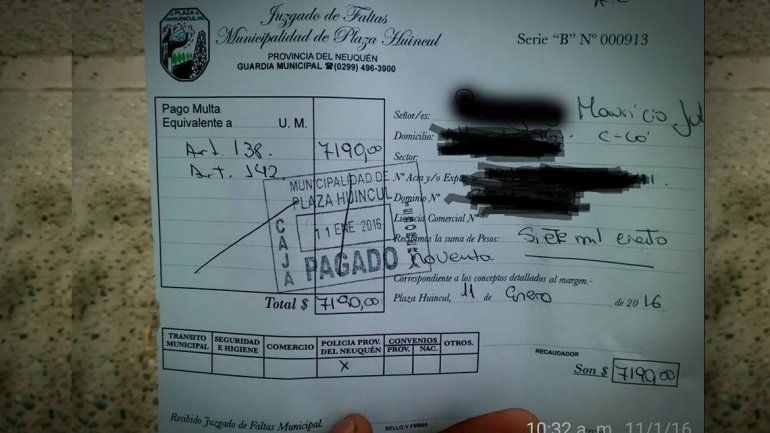 PLAZA
HUINCUL
Juzgado de Faltas
Municipalidad de Plaza Huincul
PROVINCIA DEL NEUQUÉN
GUARDIA MUNICIPAL ☎(0299) 496-3900
Serie "B" Nº 000913
Pago Multa
Equivalente a U. M.
Art. 138. 7190,00
Art. 142.
Señor/es: Mauricio
Domicilio: C-Có
Sector
Nº Acta y/o Exp
Dominio Nº
Licencia Comercial Nº
Recibimos la suma de Pesos: Siete mil ciento
noventa
Correspondiente a los conceptos detallados al margen.-
Plaza Huincul, 11 de Enero de 2016
MUNICIPALIDAD DE
PLAZA HUINCUL
CAJA
11 ENE 2016
PAGADO
Total $ 7190,00
TRANSITO MUNICIPAL
SEGURIDAD E HIGIENE
COMERCIO
POLICIA PROV. DEL NEUQUÉN
CONVENIOS
PROV. NAC.
OTROS.
X
RECAUDADOR
Son $ 7190,00
Recibido Juzgado de Faltas Municipal.
BELLO Y FIRMA
10:32 a. m. 11/1/16